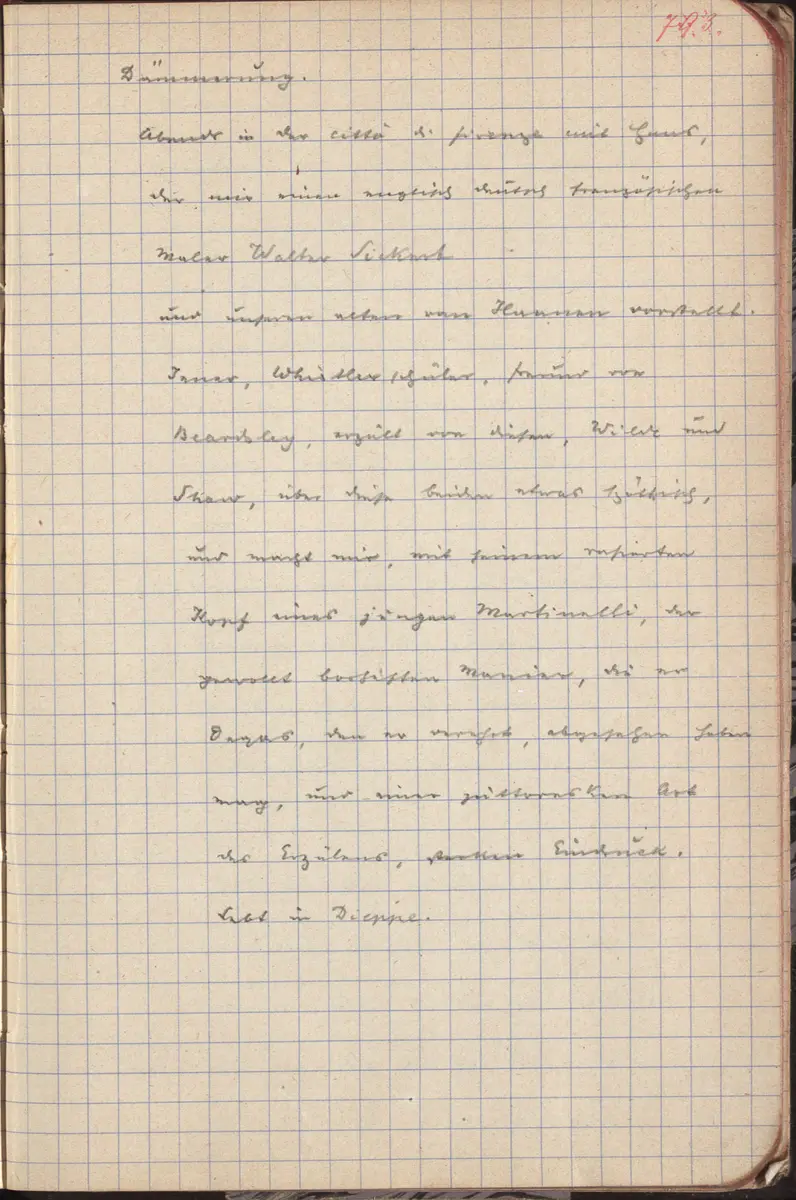 Dämmerung.
Abends in der città di firenze mit Hans,
der mir einen englisch deutsch französischen
Maler Walter Sickert
und unseren alten van Haanen vorstellt.
Jener, Whistlerschüler, freund von
Beardsley, erzält von diesen, Wilde und
Shaw, über diese beiden etwas spöttisch,
und macht mir, mit seinem rasierten
Kopf eines jungen Martinelli, der
gewollt borstigen Manier, die er
Degas, den er verehrt, abgesehen haben
mag, und einer pittoresken Art
des Erzälens, starken Eindruck.
Lebt in Dieppe.